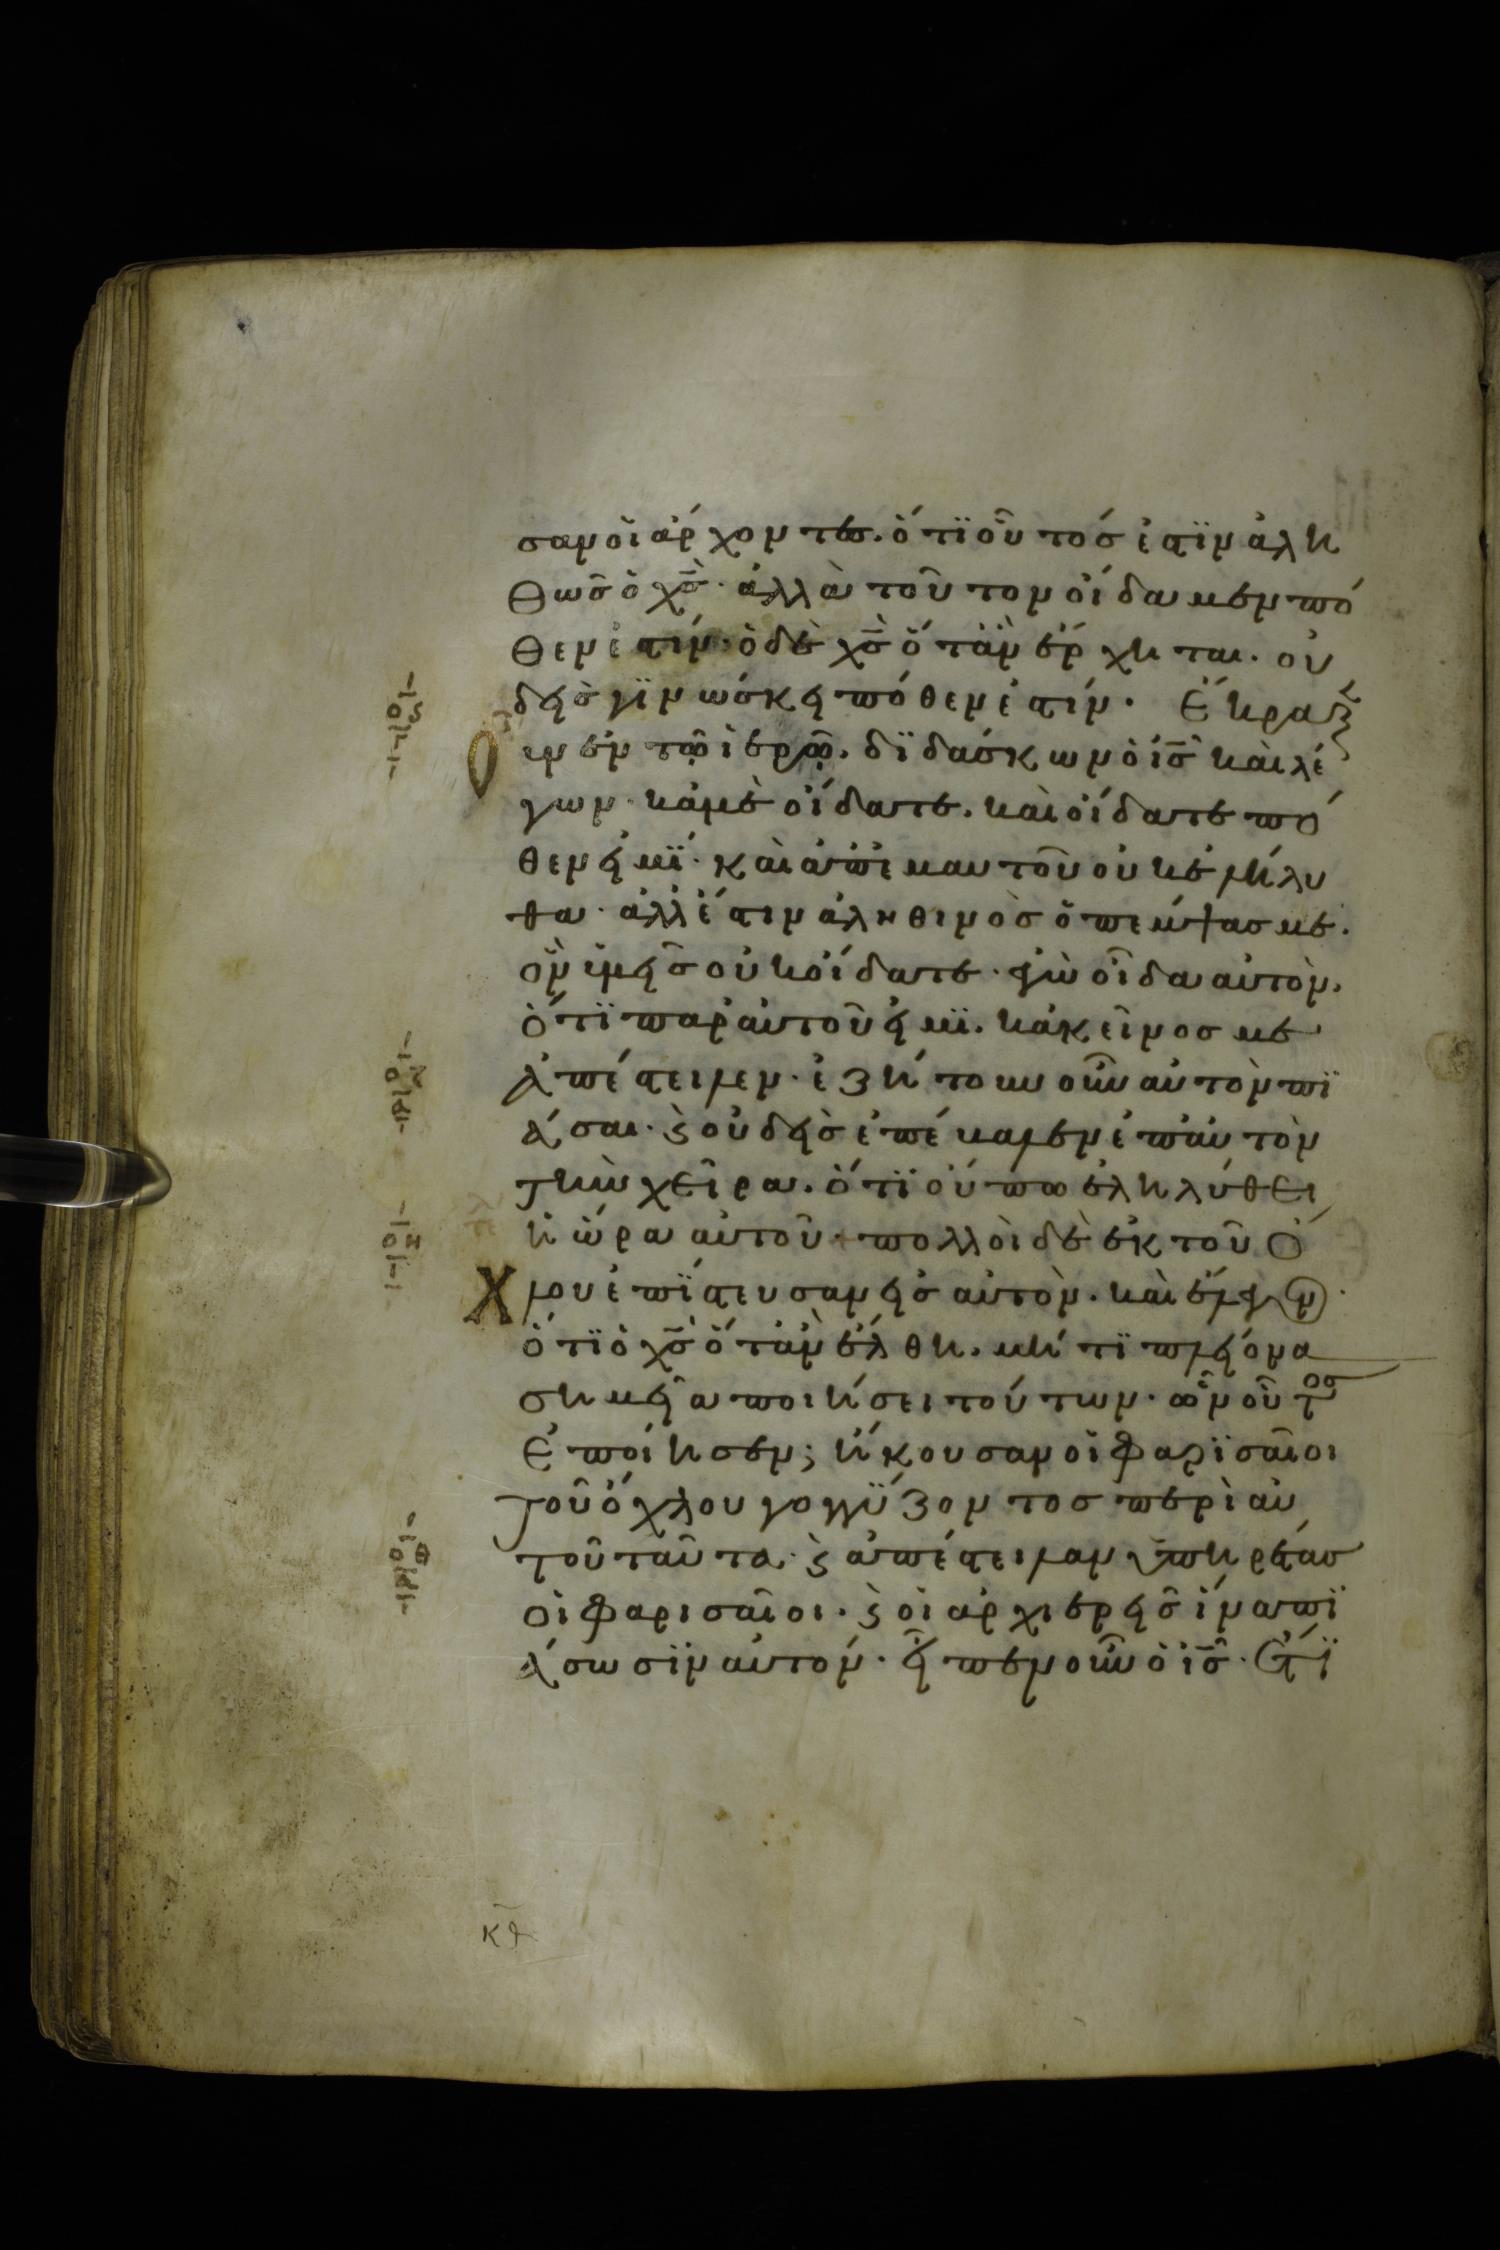 σαν οἱ ἄρχοντες. ὅτϊ οὗτός ἐστϊν ἀλη
θῶς ὁ χ̅ς̅· ἀλλὰ τοῦτον οἴδαμεν πό
θεν ἐστίν· ὁ δὲ χ̅ς̅ ὅτὰν ἔρχηται· οὐ
δεὶς γϊνώσκει πόθεν ἐστίν· Ἔκραξ
εν ἐν τῷ ἱερῷ. δϊδάσκων ὁ ἰ̅ς̅ καὶ λέ
γων· κἀμὲ οἴδατε. καὶ οἴδατε πό
θεν εἰμϊ· καὶ ἀπ' ἐμαυτοῦ οὐκ ἐλήλυ
θα· ἀλλ' ἔστιν ἀληθινὸς ὁ πέμψας με.
ὃν ὑμεῖς οὐκ οἴδατε· ἐγὼ οἶδα αὐτὸν.
ὅτϊ παρ' αὐτοῦ εἰμϊ. κἀκεῖνος με
ἀπέστειλεν· ἐζήτουν οὖν αὐτὸν πϊ
άσαι· ϛ̀ οὐδεὶς ἐπέβαλεν ἐπ' αὐτὸν
τὴν χεῖρα. ὅτϊ οὔπω ἐληλύθει
ἡ ὥρα αὐτοῦ· πολλοὶ δὲ ἐκ τοῦ ὄ
χλου ἐπΐστευσαν εἰς αὐτὸν. καὶ ἔλεγον·
ὅτϊ ὁ χ̅ς̅ ὅτὰν ἔλθη. μήτϊ πλείονα
σημεῖα ποιήσει τούτων· ὧν οὗτος
ἐποίησεν; ἤκουσαν οἱ φαρϊσαῖοι
τοῦ ὄχλου γογγΰζοντος περὶ αὐ
τοῦ ταῦτα· ϛ̀ ἀπέστειλαν ὑπηρέτας
οἱ φαρισαῖοι· ϛ̀ οἱ ἀρχιερεῖς ἵνα πϊ
άσωσϊν αὐτόν· εἶπεν οὖν ὁ ἰ̅ς̅· ἔτϊ
κθ